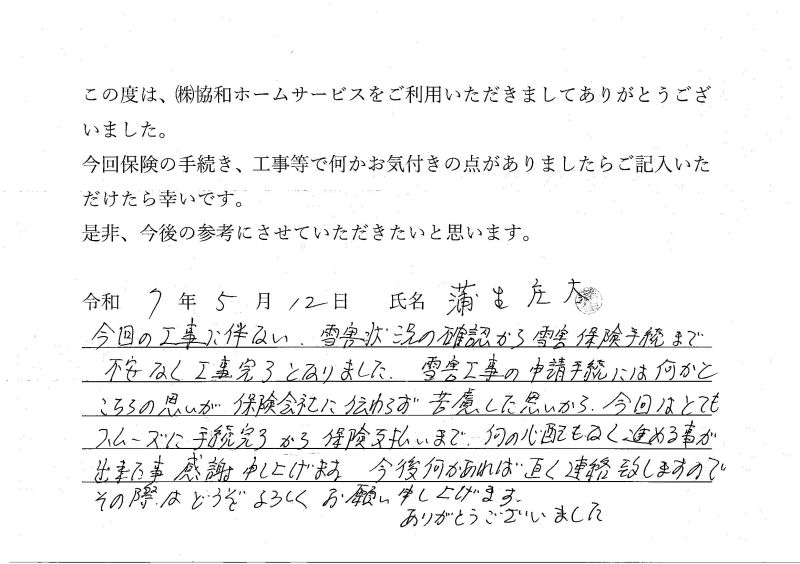 この度は、㈱協和ホームサービスをご利用いただきましてありがとうござ
いました。
今回保険の手続き、工事等で何かお気付きの点がありましたらご記入いた
だけたら幸いです。
是非、今後の参考にさせていただきたいと思います。
令和 7 年 5 月 12 日 氏名 蒲生庄太
今回の工事に伴ない、雪害状況の確認から雪害保険手続まで
不安なく工事完了となりました。雪害工事の申請手続には何かと
こちらの思いが保険会社に伝わらず苦慮した思いから、今回はとても
スムーズに手続完了から保険支払いまで、何の心配もなく進める事が
出来た事感謝申し上げます。今後何かあれば直ぐ連絡致しますので
その際はどうぞよろしくお願い申し上げます。
ありがとうございました